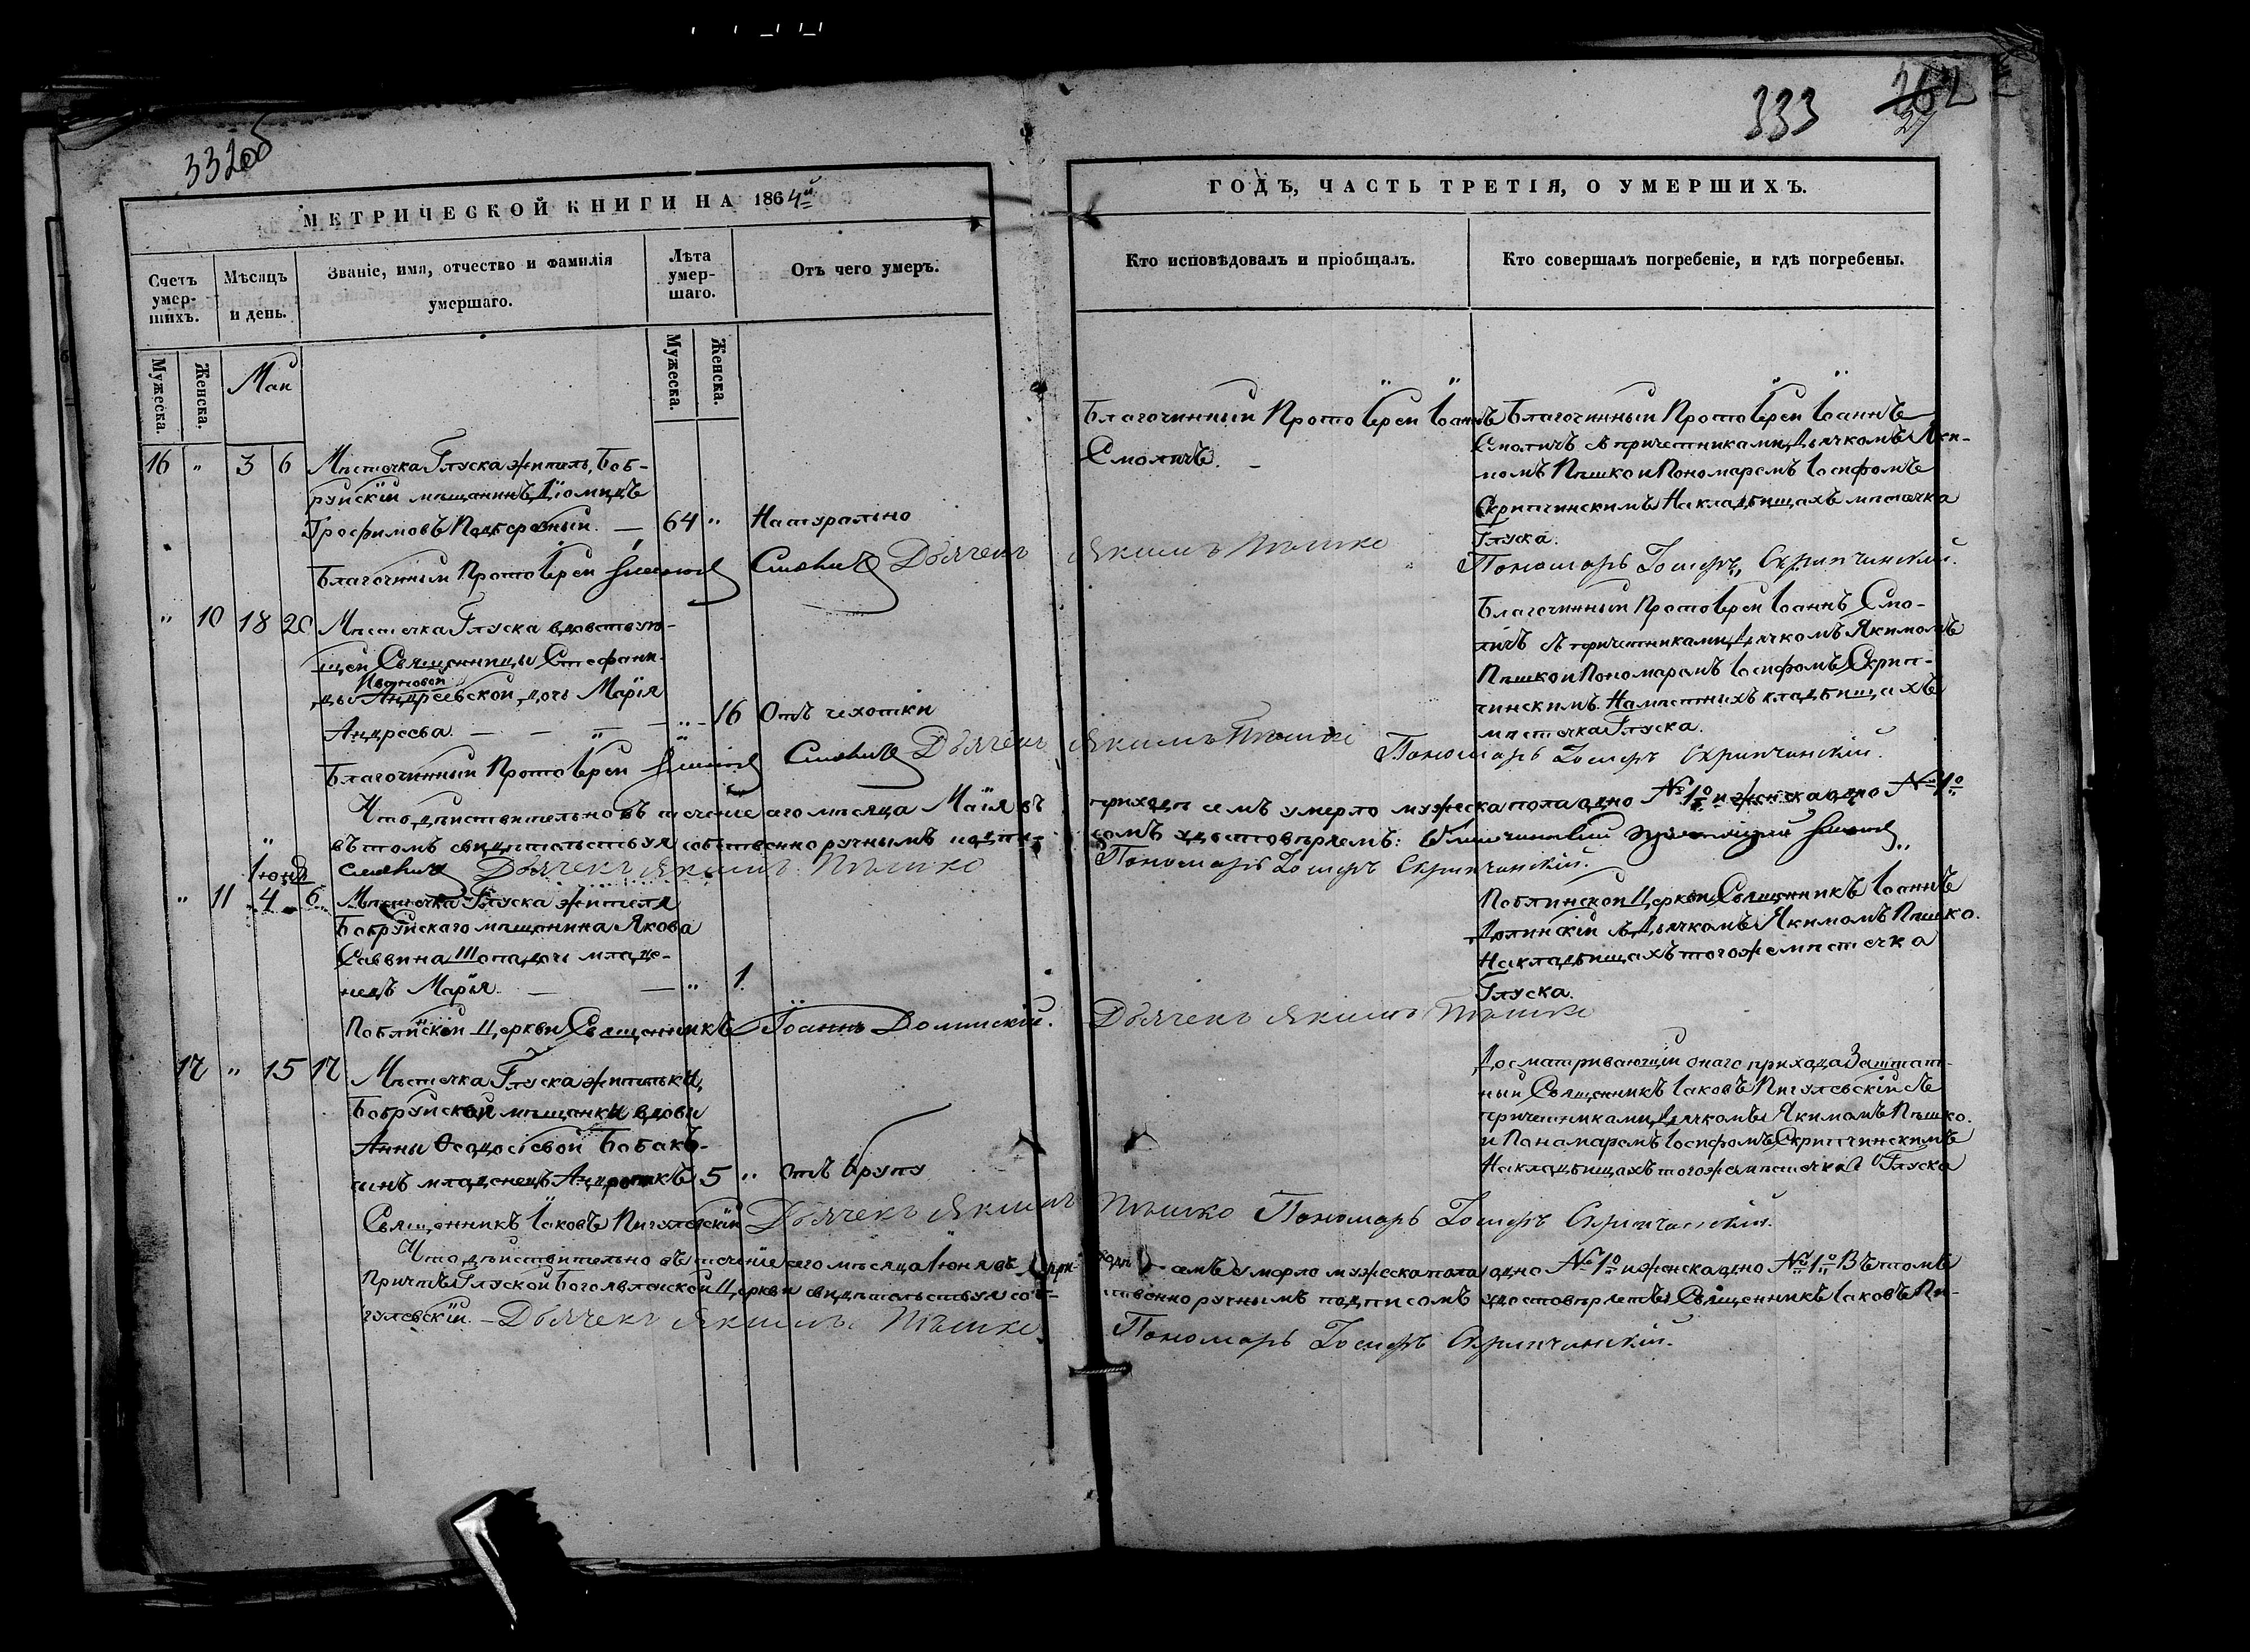 332об
333
262
27
МЕТРИЧЕСКОЙ КНИГИ НА 1864й
ГОДЪ, ЧАСТЬ ТРЕТІЯ, О УМЕРШИХЪ.
Счетъ умер-шихъ.
Мѣсяцъ и день.
Званіе, имя, отчество и фамилія умершаго.
Лѣта умер-шаго.
Отъ чего умеръ.
Кто исповѣдовалъ и пріобщалъ.
Кто совершалъ погребеніе, и гдѣ погребены.
Мужеска.
Женска.
Маи
Мужеска.
Женска.
16 " 3 6 Мѣстечка Глуска житель, Боб-
руйскій мѣщанинъ Діомидъ
Трофимовъ — 64 " Натурально
Благочинный Протоіерей Іоаннъ
Смоличъ. -
Благочинный Протоіерей Іоаннъ
Смоличъ съ причетниками Дьячкомъ Яки-
момъ Пѣшко и Пономаремъ Іосифомъ
Скрипчинскимъ На кладбищахъ мѣстечка
Глуска.
Благочинный Протоіерей Смоличъ Дьячекъ Якимъ Пѣшко
Пономарь Іосифъ Скрипчинскій.
" 10 18 20 Мѣстечка Глуска вдовствую-
щей Священницы Стефани-
ды Ивановой
Андреевской дочь Марія
Андреева. — — " — " 16 Отъ чехотки
Благочинный Протоіерей Іоаннъ Смо-
личъ съ причетниками Дьячкомъ Якимомъ
Пѣшко и Пономаремъ Іосифомъ Скрип-
чинскимъ. На мѣстныхъ кладбищахъ
мѣстечка Глуска.
Благочинный Протоіерей Смоличъ Дьячекъ Якимъ Пѣшко
Пономарь Іосифъ Скрипчинскій.
Что дѣйствительно въ теченіе сего мѣсяца Маія въ приходѣ семъ умерло мужеска пола одно №1º и женска одно №1º
въ томъ свидѣтельствуя собственноручнымъ подпи-сомъ удостовѣряемъ: Благочинный
Смоличъ Дьячекъ Якимъ Пѣшко Пономарь Іосифъ Скрипчинскій.
Іюня
" 11 4 6 Мѣстечка Глуска жителя
Бобруйскаго мѣщанина Якова
Саввина Шопа дочь младе-
нецъ Марія — — " 1
Поблинской Церкви Священникъ Іоаннъ
Долинскій съ Дьячкомъ Якимомъ Пѣшко.
На кладбищахъ тогожъ мѣстечка
Глуска.
Поблинской Церкви Священникъ Іоаннъ Долинскій. Дьячекъ Якимъ Пѣшко
12 " 15 17 Мѣстечка Глуска жительки,
Бобруйской мѣщанки вдовы
Анны Ѳеодосіевой Бобакъ-
сынъ младенецъ 5 " отъ Крупу
Досматривающій онаго прихода Заштат-
ный Священникъ Іаковъ Пигулевскій съ
причетниками, Дьячкомъ Якимомъ Пѣшко.
и Панамаремъ Іосифомъ Скрипчинскимъ
На кладбищахъ тогожъ мѣстечка Глуска
Священникъ Іаковъ Пигулевскій Дьячекъ Якимъ Пѣшко Пономарь Іосифъ Скрипчинскій.
Что дѣйствительно въ теченіе сего мѣсяца Іюня въ (приходѣ) семъ умерло мужеска пола одно №1º и женска одно №1º Въ томъ
Причтъ Глуской Богоявленской Церкви свидѣтельствуя соб-ственноручнымъ подписомъ удостовѣряетъ: Священникъ Іаковъ Пи-
гулевскій. - Дьячекъ Якимъ Пѣшко Пономарь Іосифъ Скрипчинскій.